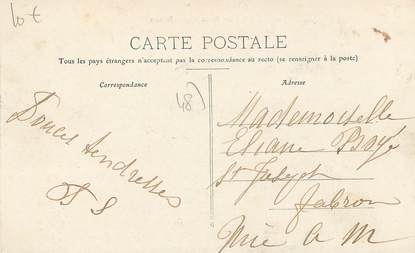 lot
CARTE POSTALE
Tous les pays étrangers n'acceptent pas la correspondance au recto (se renseigner à la poste)
Correspondance
Adresse
48)
Douces tendresses
Mademoiselle
Eliane
St
Jabron